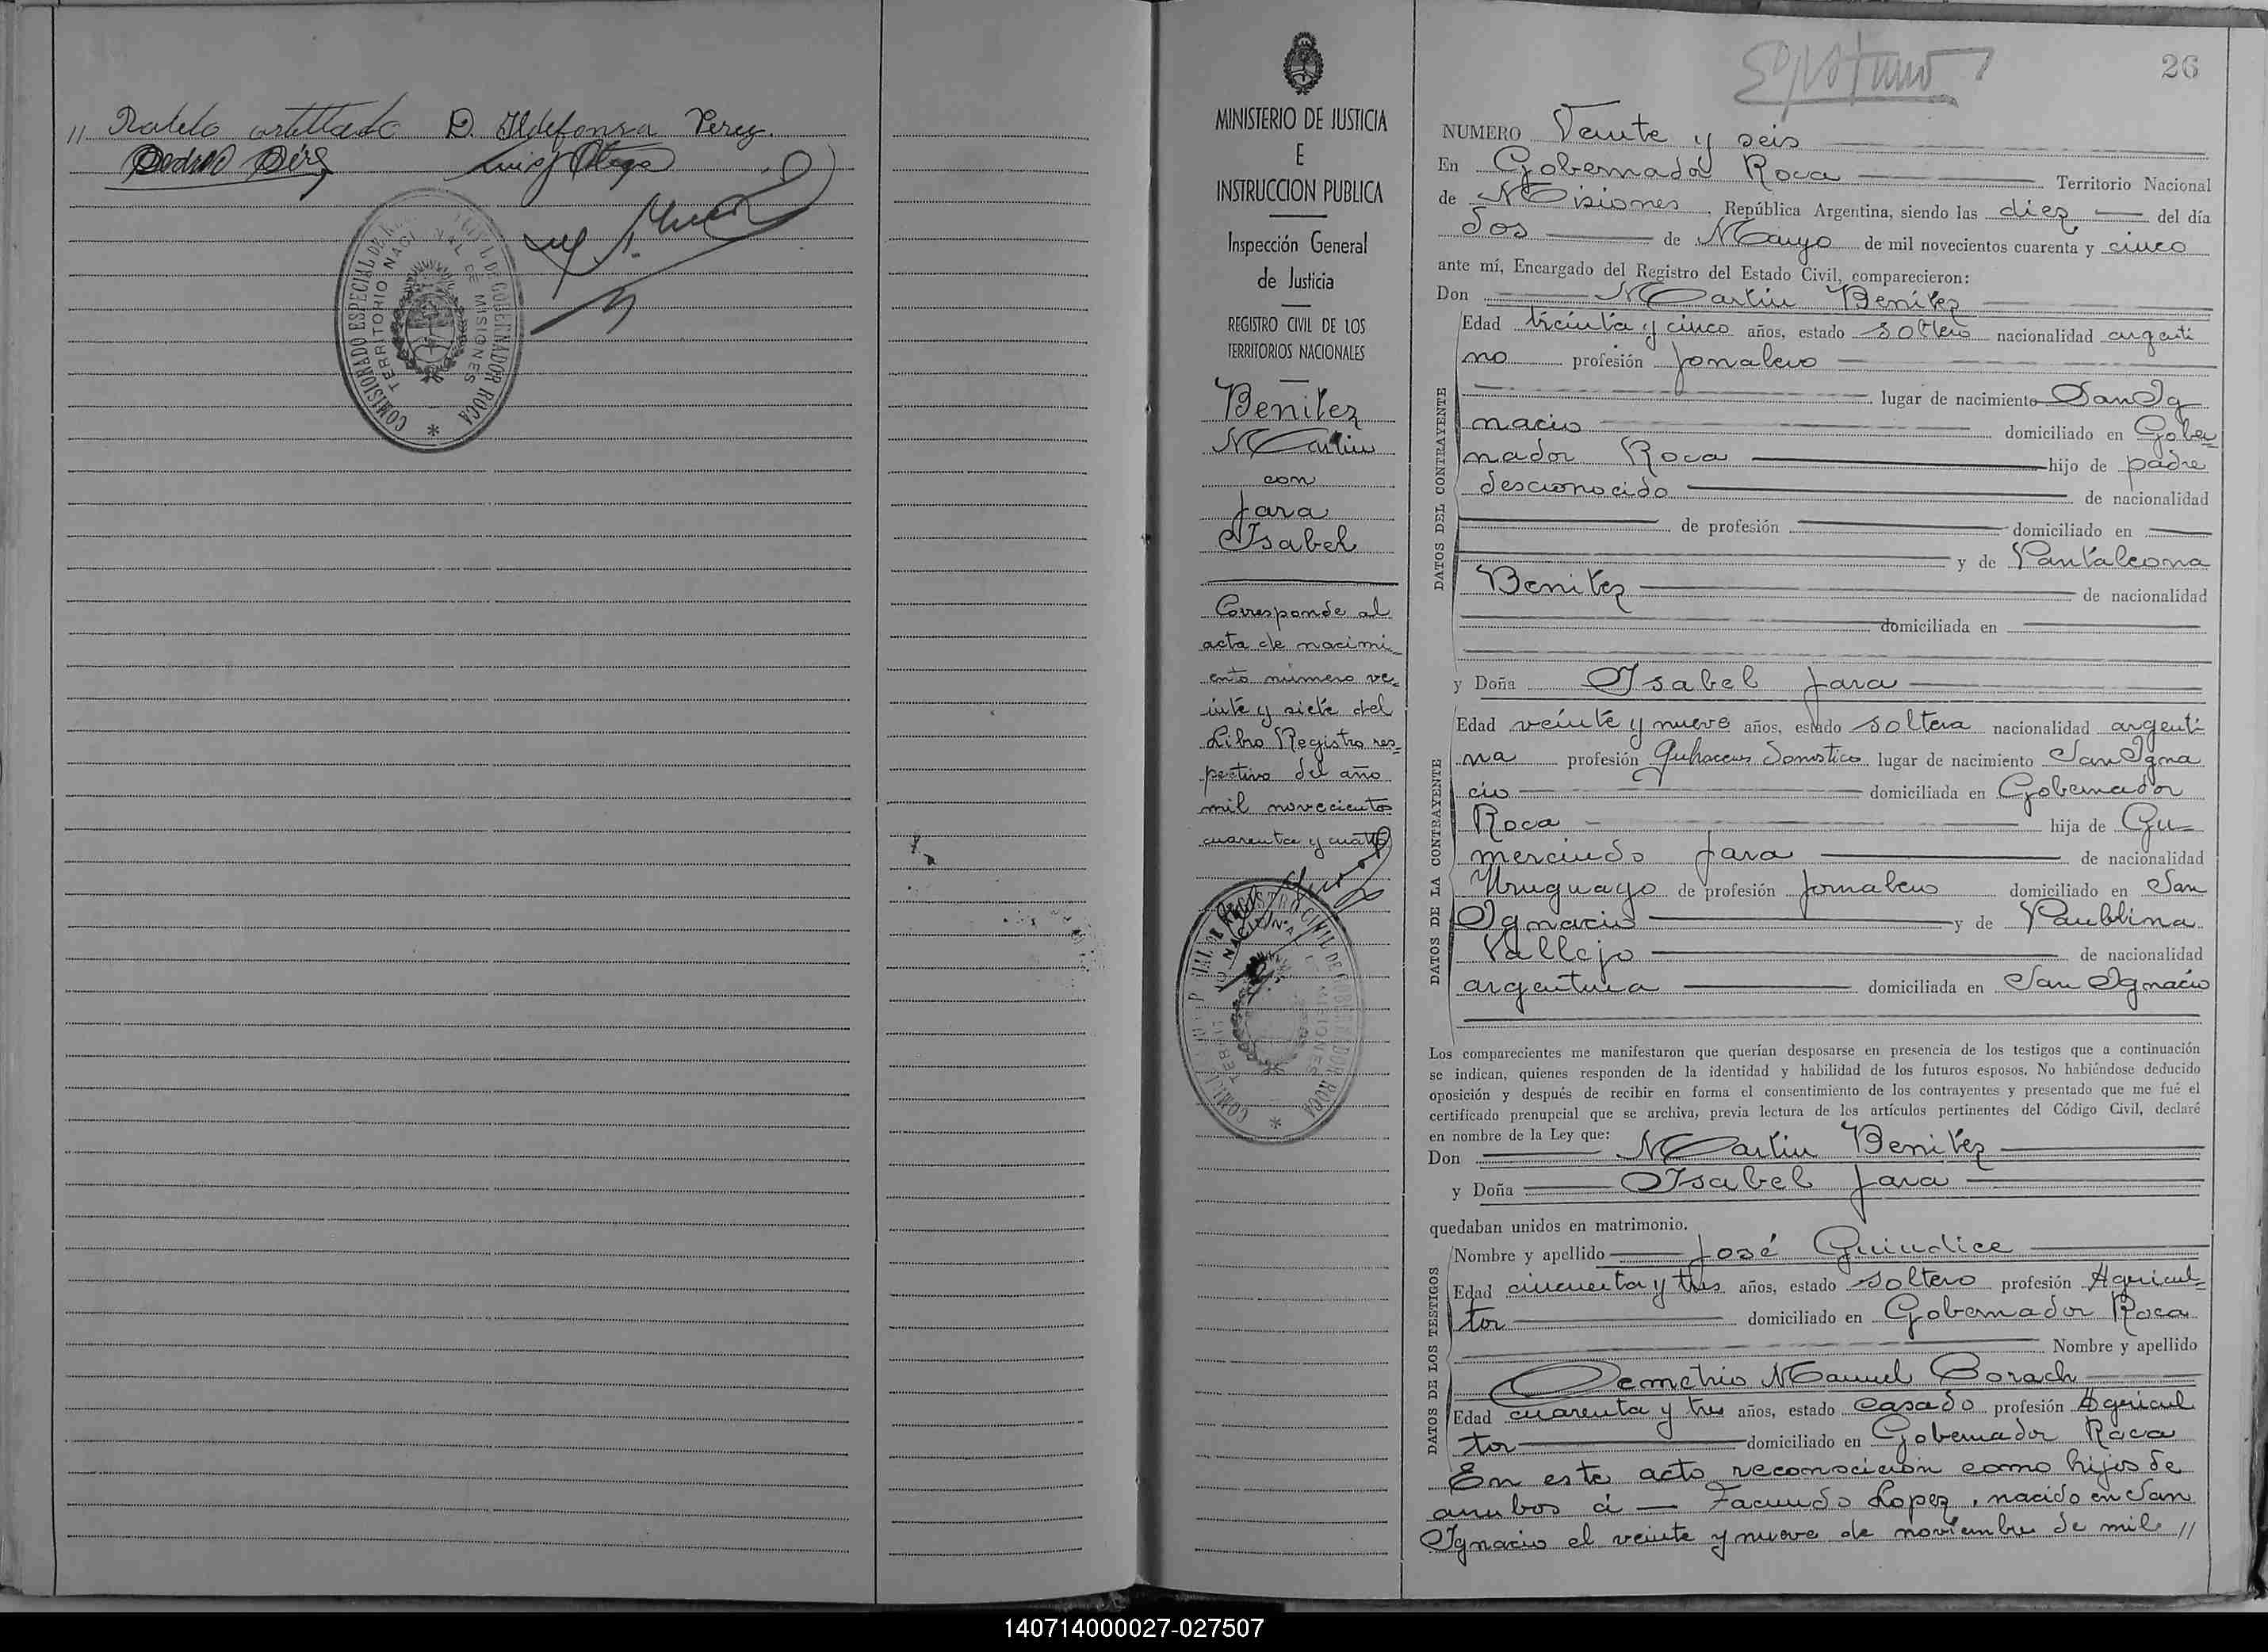 // Rodolfo D. Ildefonsa Perez.
Pedro Pérez Luis
COMISIONADO ESPECIAL DE REGISTRO CIVIL DE GOBERNADOR ROCA
TERRITORIO NACIONAL DE MISIONES
*
MINISTERIO DE JUSTICIA
E
INSTRUCCION PUBLICA
Inspección General
de Justicia
REGISTRO CIVIL DE LOS
TERRITORIOS NACIONALES
Benitez
Martin
con
Jara
Isabel
Corresponde al
acta de nacimi-
ento número ve-
inte y siete del
Libro Registro res-
pectivo del año
mil novecientos
cuarenta y cuatro
26
NUMERO Veinte y seis
En Gobernador Roca Territorio Nacional
de Misiones, República Argentina, siendo las diez del día
dos de Mayo de mil novecientos cuarenta y cinco
ante mí, Encargado del Registro del Estado Civil, comparecieron:
Don Martin Benitez
DATOS DEL CONTRAYENTE
Edad treinta y cinco años, estado soltero nacionalidad argenti
no profesión Jornalero
lugar de nacimiento San Ig
nacio domiciliado en Gober-
nador Roca hijo de padre
desconocido de nacionalidad
de profesión domiciliado en
y de Pantaleona
Benitez de nacionalidad
domiciliada en
y Doña Isabel Jara
DATOS DE LA CONTRAYENTE
Edad veinte y nueve años, estado soltera nacionalidad argenti
na profesión Quhaceres Domestico lugar de nacimiento San Igna
cio domiciliada en Gobernador
Roca hija de Gu-
mercindo Jara de nacionalidad
Uruguayo de profesión Jornalero domiciliado en San
Ignacio y de Paublina
Vallejo de nacionalidad
argentina domiciliada en San Ignacio
Los comparecientes me manifestaron que querían desposarse en presencia de los testigos que a continuación
se indican, quienes responden de la identidad y habilidad de los futuros esposos. No habiéndose deducido
oposición y después de recibir en forma el consentimiento de los contrayentes y presentado que me fué el
certificado prenupcial que se archiva, previa lectura de los artículos pertinentes del Código Civil, declaré
en nombre de la Ley que:
Don Martin Benitez
y Doña Isabel Jara
quedaban unidos en matrimonio.
DATOS DE LOS TESTIGOS
Nombre y apellido José Guiudice
Edad cincuenta y tres años, estado soltero profesión Agricul-
tor domiciliado en Gobernador Roca
Nombre y apellido
Demetrio Manuel Borach
Edad cuarenta y tres años, estado casado profesión Agricul
tor domiciliado en Gobernador Roca
En este acto reconocieron como hijos de
ambos á — Facundo Lopez, nacido en San
Ignacio el veinte y nueve de noviembre de mil //
140714000027-027507